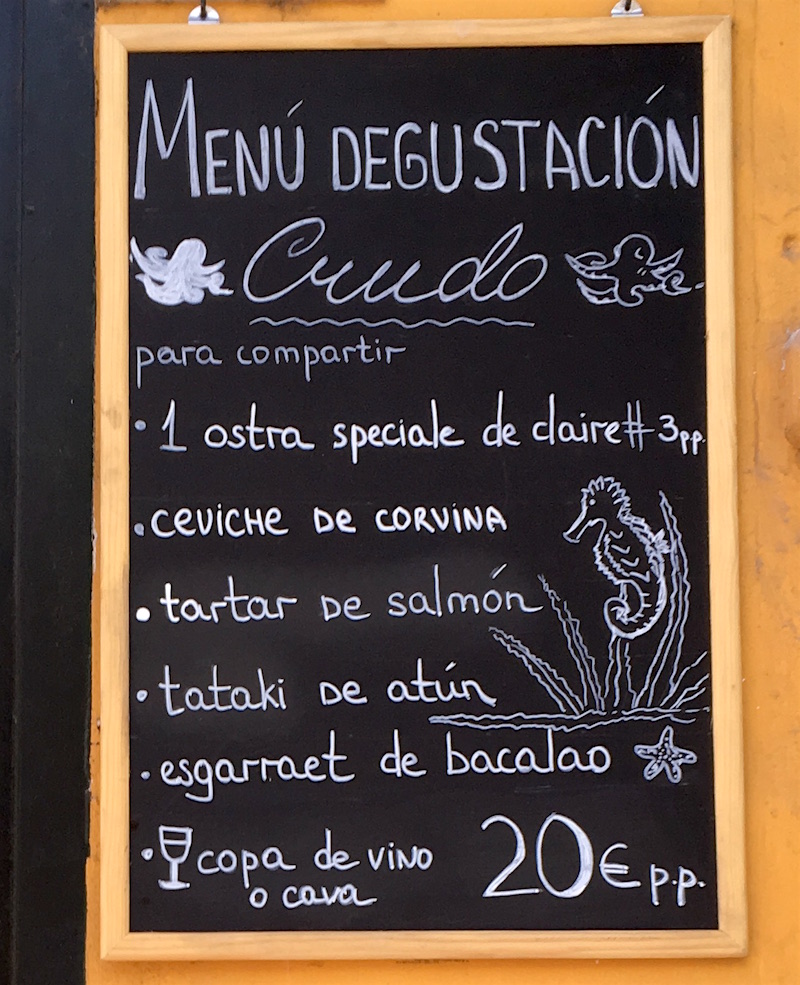 MENÚ DEGUSTACIÓN
Crudo
para compartir
· 1 ostra speciale de claire # 3 pp.
· CEVICHE DE CORVINA
· tartar DE salmón
· tataki DE atún
· esgarraet de bacalao
· copa de vino
o cava
20€ p.p.